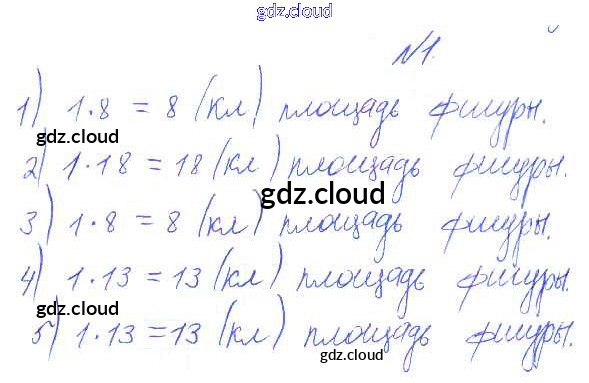 gdz.cloud
№1.
1) 1·8 = 8 (кл) площадь фигуры.
gdz.cloud
2) 1·18 = 18 (кл) площадь фигуры.
gdz.cloud
3) 1·8 = 8 (кл) площадь фигуры.
4) 1·13 = 13 (кл) площадь фигуры.
gdz.cloud
5) 1·13 = 13 (кл) площадь фигуры.
gdz.cloud